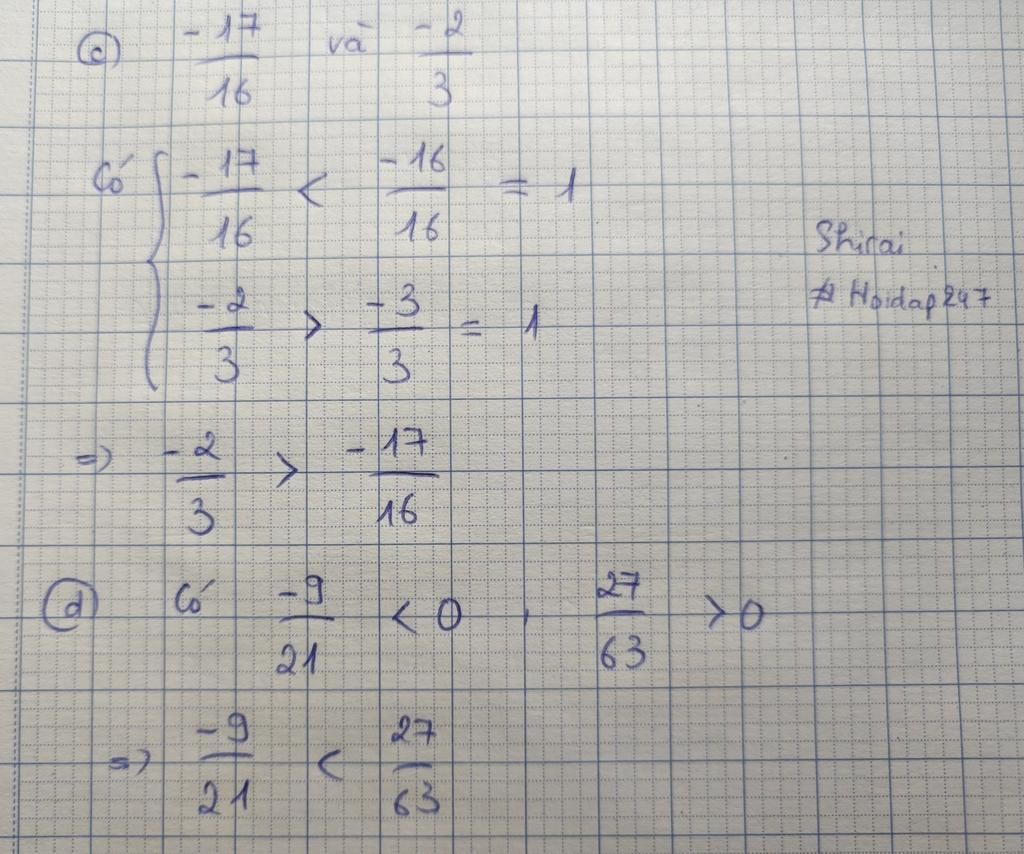 c) -17/16 và -2/3
Có { -17/16 < -16/16 = 1
-2/3 > -3/3 = 1
Shirai
# Hoidap247
=> -2/3 > -17/16
d) Có -9/21 < 0 , 27/63 > 0
=> -9/21 < 27/63